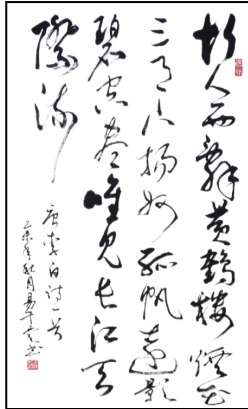 故人西辭黄鶴樓煙花
三月下揚州孤帆遠影
碧空盡唯見長江天
際流
唐李白诗一首
乙未年秋月書